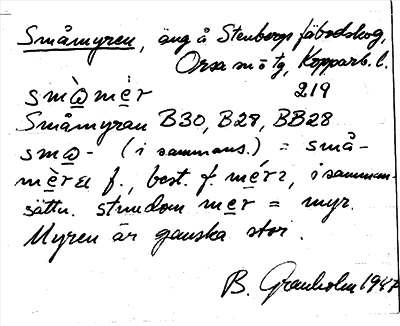 Småmyren, äng å Stenbergs fäbodskog,
Orsa mötg, Kopparb. l.
smωmèr 219
Småmyran B30, B28, BB28
smω- (i sammans.) = små-
f., best. f. i samman-
sättn. stundom mer = myr.
Myren är ganska stor.
B. Granholm 1947